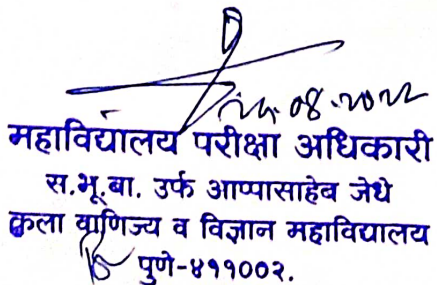 08.2022
महाविद्यालय परीक्षा अधिकारी
स.भू.बा. उर्फ आप्पासाहेब जेधे
कला वाणिज्य व विज्ञान महाविद्यालय
पुणे-४११००२.